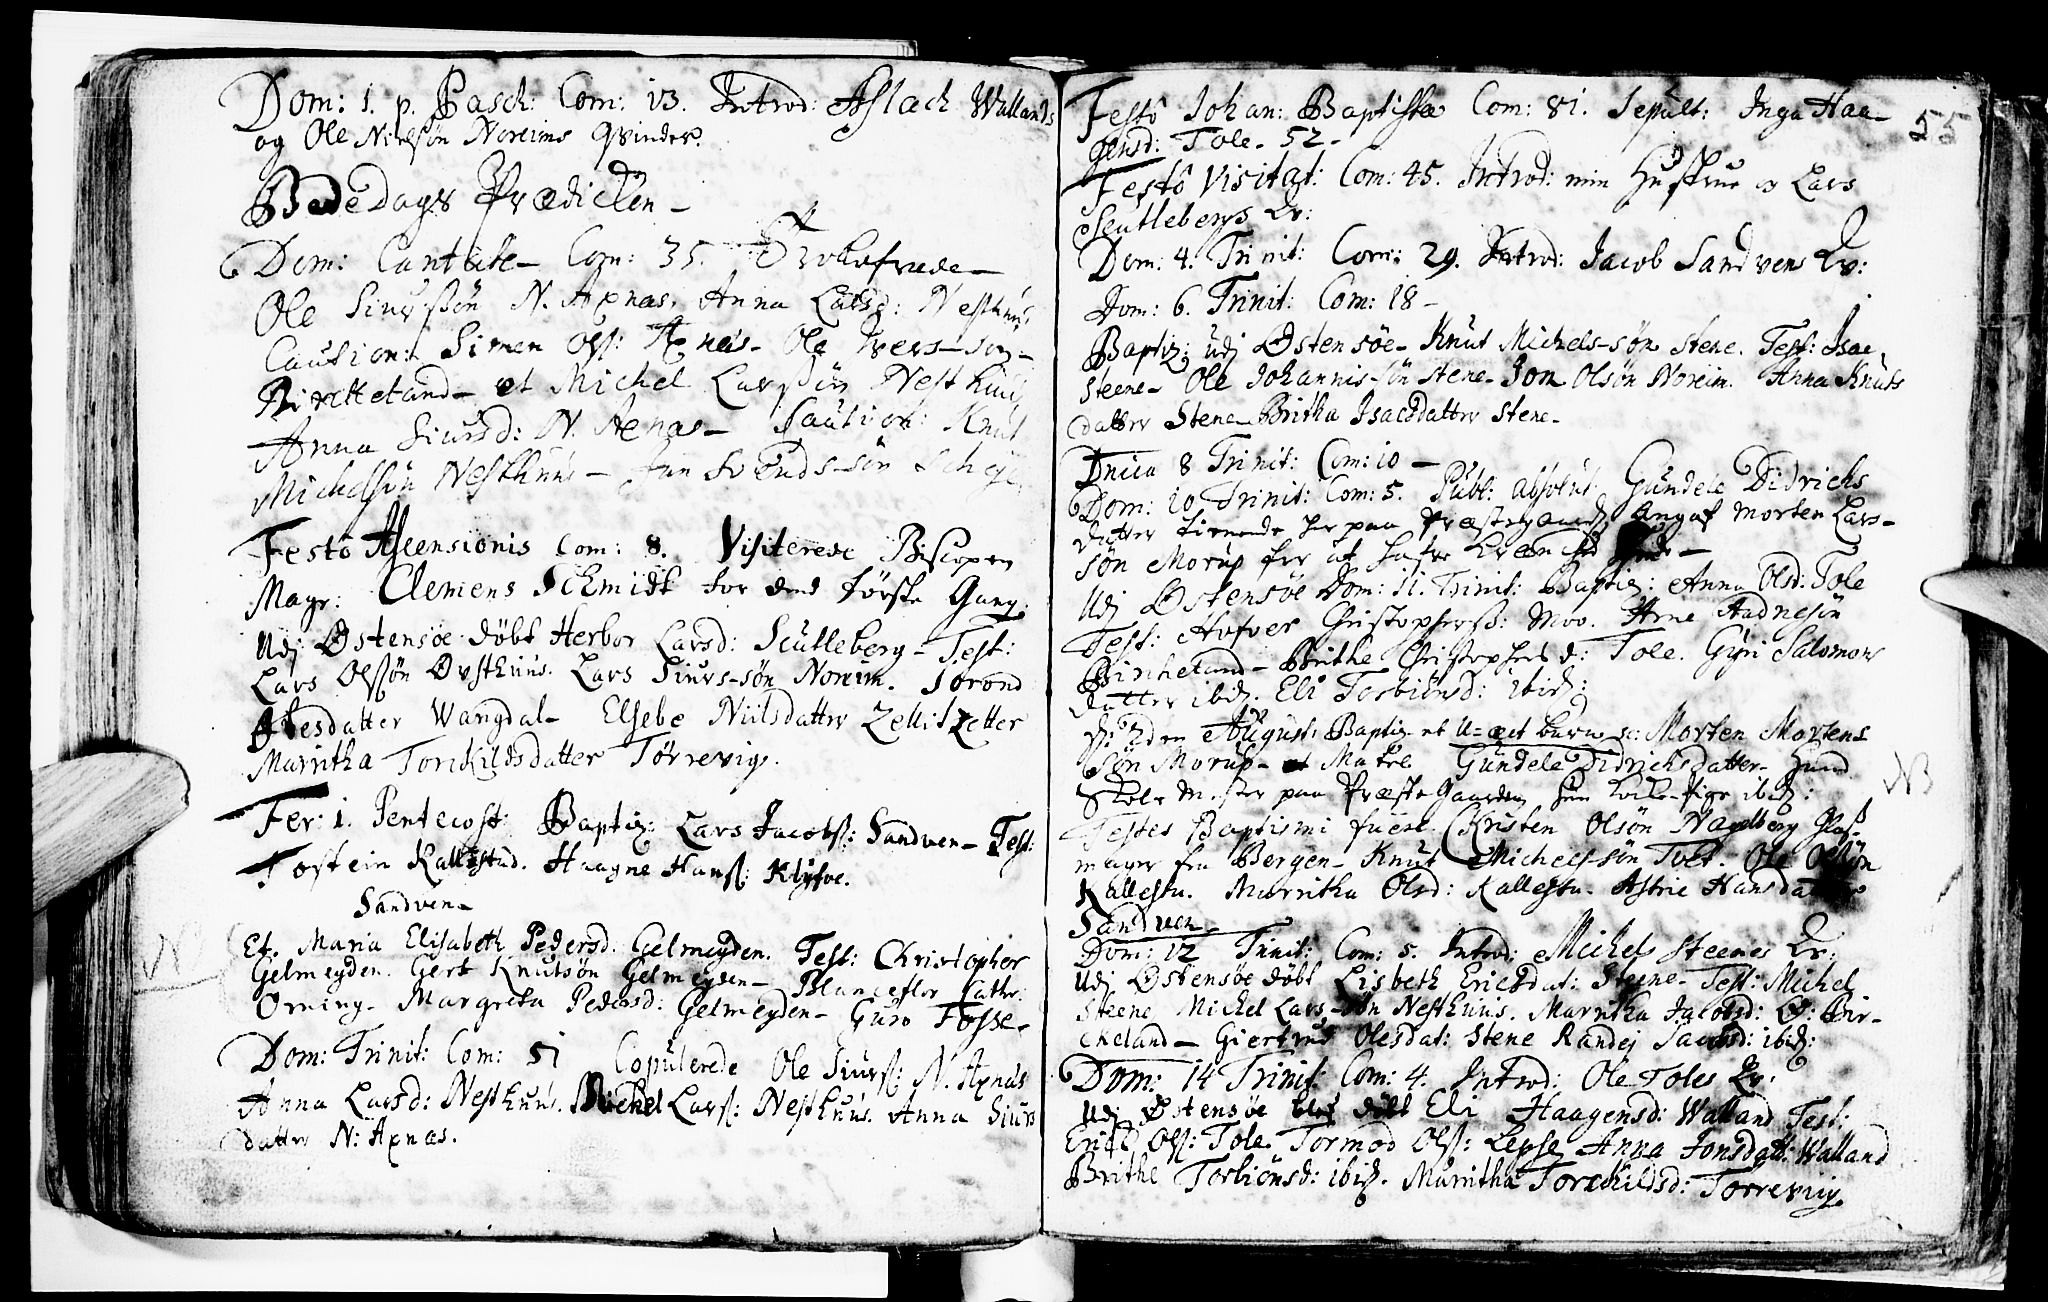 Dom: 1. p. Pasch: Com: 13. Introd: Aslach Wallands
og Ole Nielsøn Noreims Qvinder.
Bededags Prædicken -
Dom: Cantate - Com: 35. Trolofvede -
Ole Siurssøn N. Axnæs, Anna Larsd: Nesthuus
Caution: Simen Ols: Axnæs - Ole Ivers-søn -
Birckeland - et Michel Larssøn Nesthuus
Anna Siursd: N. Axnæs - Caution: Knut
Michelsøn Nesthuus - Jon Svends-søn
Festo Ascensionis Com: 8. Visiterede Biscopen
Magr: Clemens Schmidt for den første Gang.
Udj Østensøe døbt Herbor Larsd: Scutleberg - Test:
Lars Olssøn Øvsthuus. Lars Siurs-søn Noreim. Jorond
datter Wangdal - Elsebe Niilsdatter
Marritha Torckildsdatter Tørrevig.
Fer: 1. Pentecost: Baptiz: Lars Jacobs: Sandven - Test:
Tostein Kallestad. Haagne Hans: Klyfve.
Sandven -
Et. Maria Elisabeth Pedersd: Gelmeyden. Test: Christopher
Gelmeyden. Gert Knutsøn Gelmeyden - Blanceflor Cathr:
Orning - Margreta Pedersd: Gelmeyden - Guro Fosse -
Dom: Trinit: Com: 51 Copulerede Ole Siurs: N. Axnæs
Anna Larsd: Nesthuus. Michel Lars: Nesthuus. Anna Siurs
datter N: Axnæs.
55
Festo Johan: Baptistæ Com: 81. Sepult: Inga Haa-
gensd: Tole - 52 -
Festo Visitat: Com: 45. Introd: min Hustrue og Lars
Scutlebergs Qv:
Dom: 4. Trinit: Com: 29. Introd: Jacob Sandvens Qv:
Dom: 6. Trinit: Com: 18 -
Baptiz: udj Østensøe - Knut Michels-søn Stene. Test: Isac
Steene - Ole Johannis-søn Stene - Jon Olsøn Noreim. Anna Knuts
datter Stene - Britha Isacsdatter Stene -
Dnica 8 Trinit: Com: 10 -
Dom: 10 Trinit: Com: 5. Publ: absolut: Gundele Didrichs
datter tienende her paa Præstegaard, Angaf Morten Lars-
søn Morup for at hafve
Udj Østensøe Dom: 11. Trinit: Baptiz: Anna Olsd: Tole
Test: Aofver Christophers: Moo. Arne Aadnesøn
Birkeland - Brithe Christophersd: Tole. Gyri Salomons
datter ibid: Eli Torbiørsd: ibid:
d: 2den August: Baptiz et U-æct barn n: Morten Mortens
søn Morup - Matre Gundele Didrichsdatter -
paa Præste Gaarden ibid:
Testes Baptismi fuere. Kristen Olsøn Nagelberg Glas-
mager fra Bergen - Knut Michels-søn Tolt. Ole Olssøn
Kallestu. Marritha Olsd: Kallestu. Astrie Hansdatter
Sandven.
Dom: 12 Trinit: Com: 5. Introd: Michel Steenes Qv:
Udj Østensøe døbt Lisbeth Ericsdat: Steene - Test: Michel
Steene, Michel Lars-søn Nesthuus. Marritha Jacobsd: Ø: Bir-
ckeland - Giertrud Olesdat: Stene Randej Jacobsd: ibid:
Dom: 14 Trinit: Com: 4. Introd: Ole Toles Qv:
Udj Østensøe blef døbt Eli Haagensd: Walland Test:
Erich Ols: Tole. Tormod Ols: Lepse Anna Jonsdatt: Walland
Brithe Torbiønsd: ibid. Marritha Torckildsd: Torrevuig.
NB